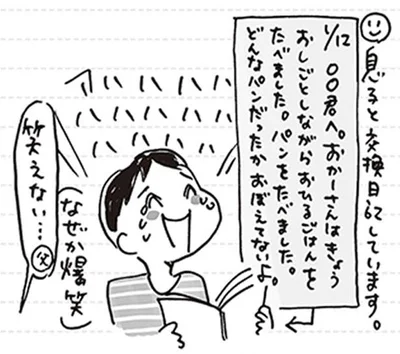 息子と交換日記しています。
1/12 〇〇君へ。おかーさんはきょう
おしごとしながらおひるごはんを
たべました。パンをたべました。
どんなパンだったかおぼえてないよ。
ハハハハハハ
ハハハハハ
ハハハハ
(なぜか爆笑)
笑えない…
父